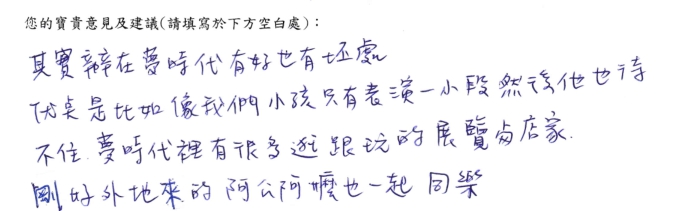 您的寶貴意見及建議(請填寫於下方空白處)：
其實辦在夢時代有好也有坏處
优點是比如像我們小孩只有表演一小段然後他也待
不住.夢時代裡有很多逛跟玩的展覽與店家.
剛好外地來的阿公阿嬤也一起同樂